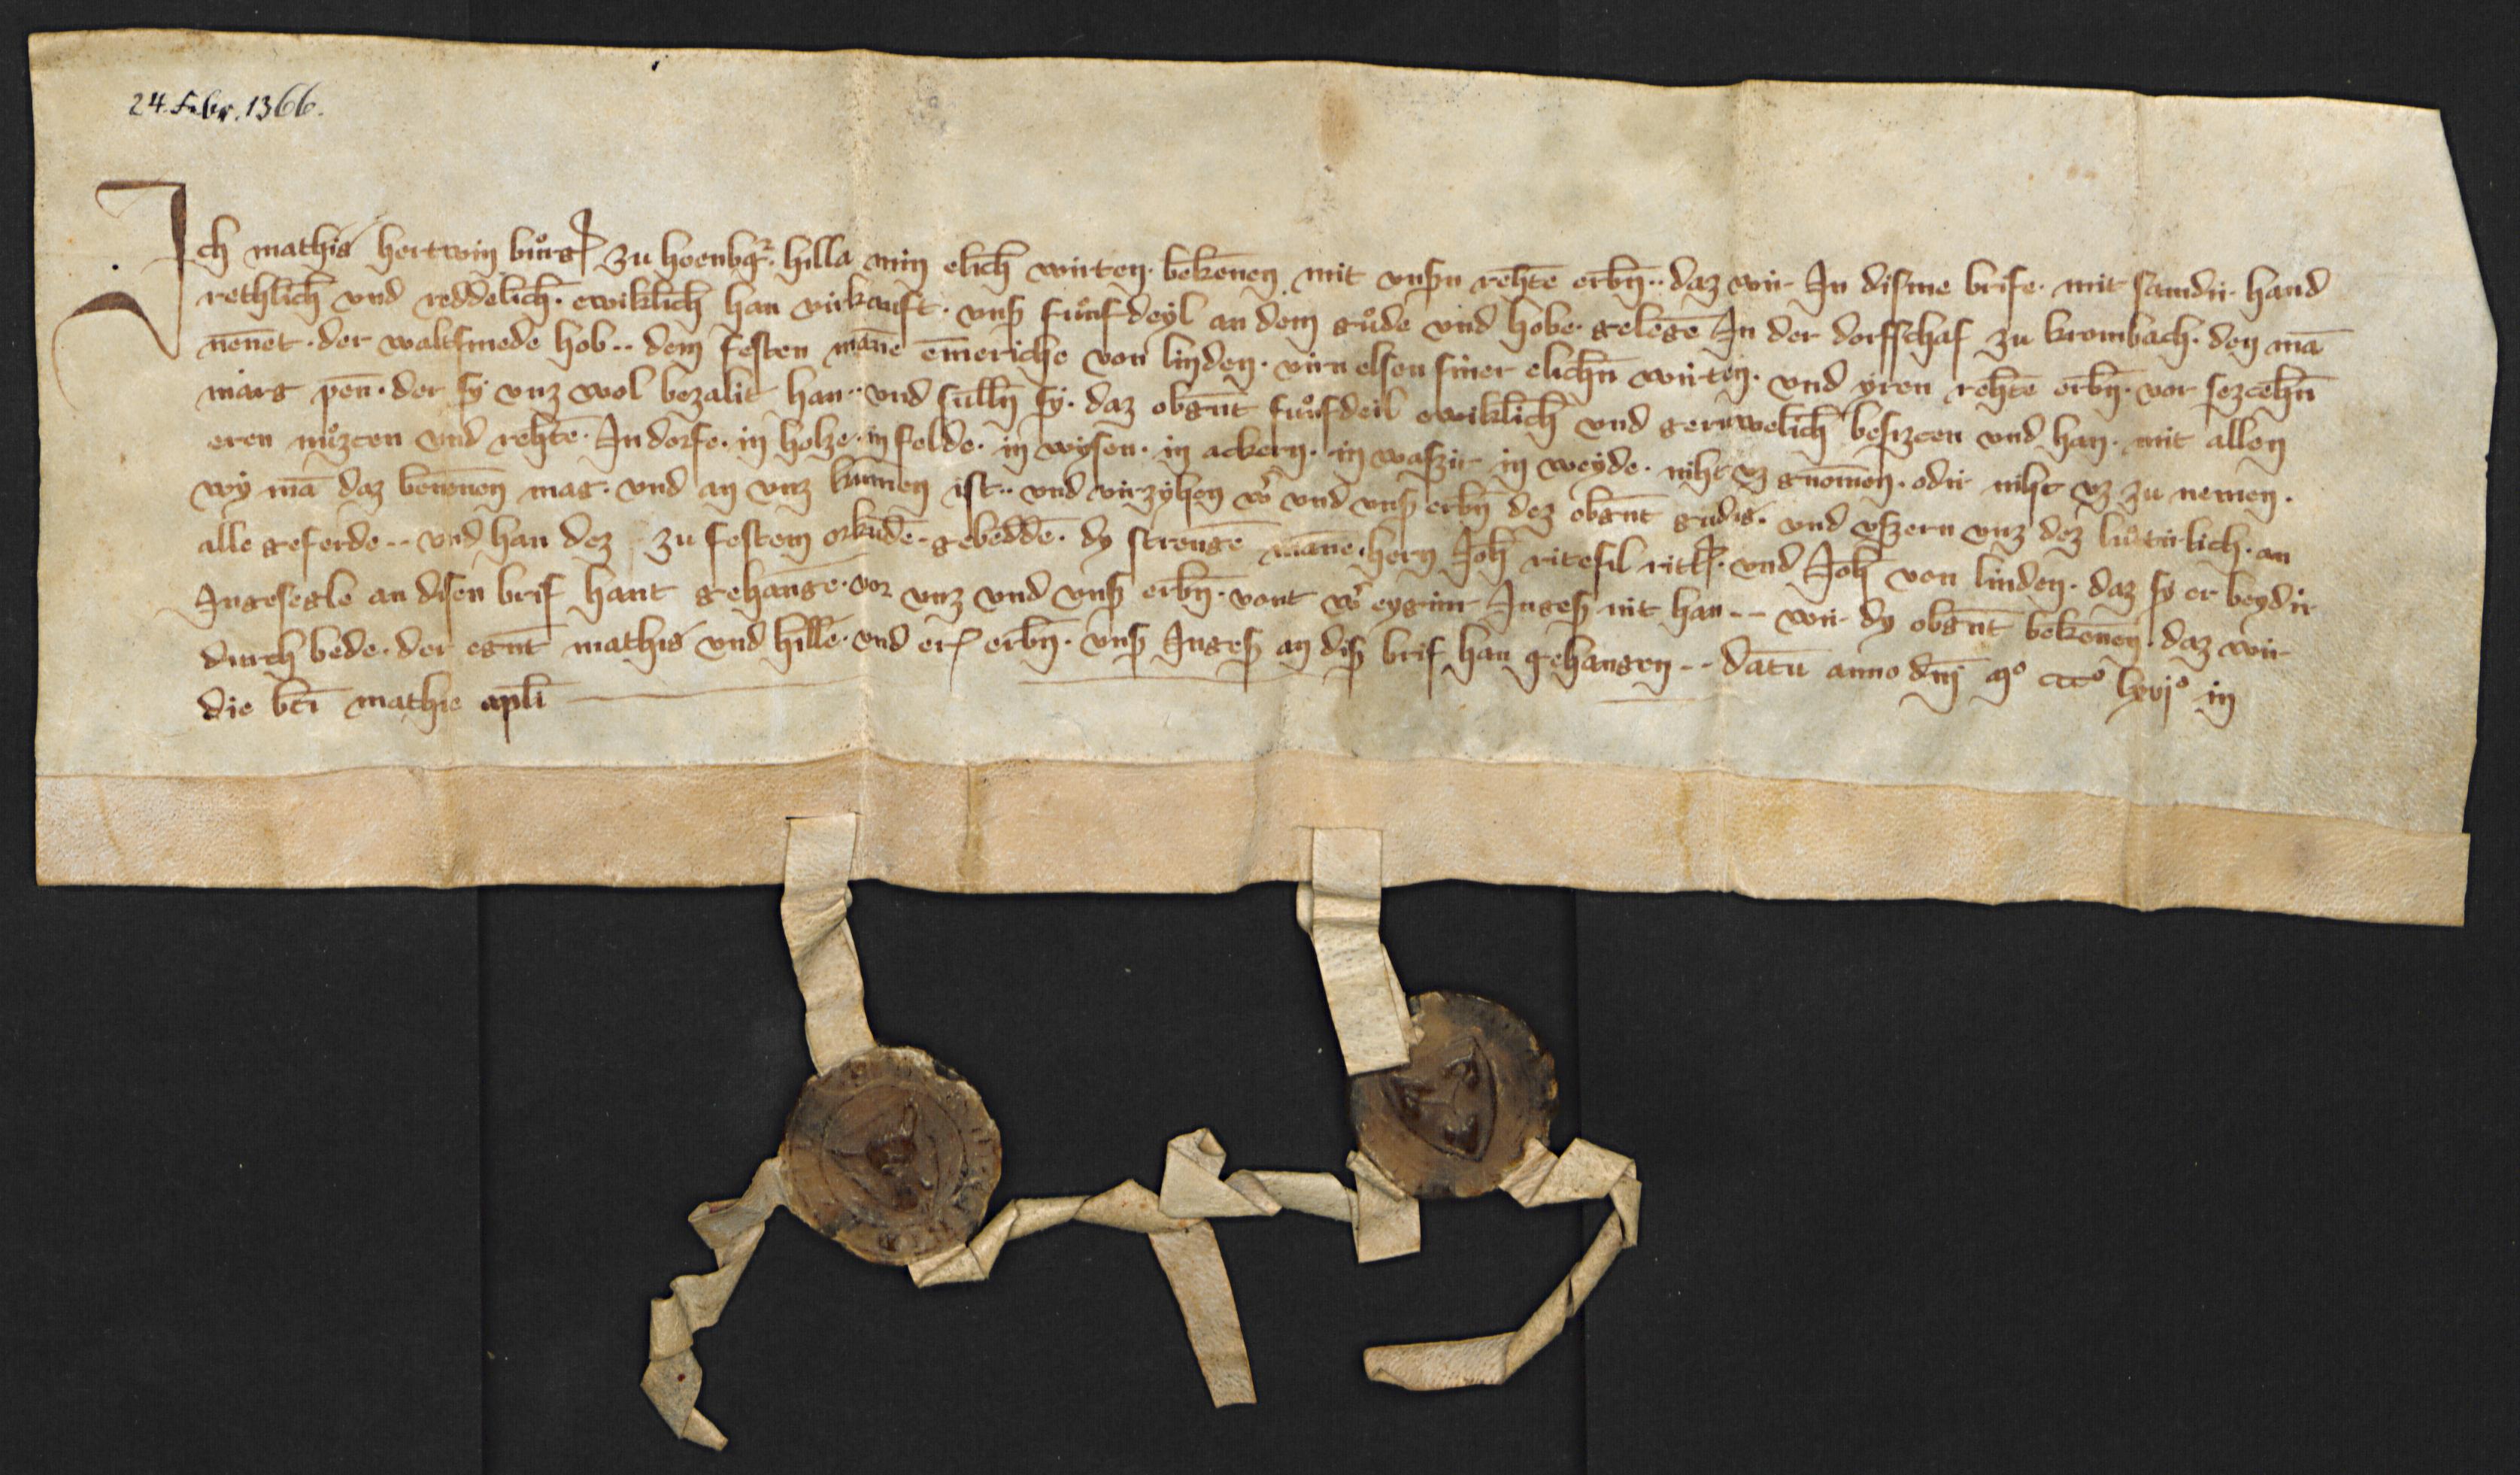 24. Febr. 1366.
Ich mathis hertwin bůrg̕ zu hoenbg̕. hilla min elich̄ wirten. bekēnen mit vnsˢn rehtē erbn̄ .. daz wir In disme brife. mit samdir hand
rethlich̄ vnd reddelich̄. ewiklich̄ han virkauft. vnsˢ fuͦnfdeyl an dem guͦde vnd hobe. gelegē In der dorfschaf zu krombach. den mā
nēnet. der waltsmede hob .. dem festen māne ēmeriche von linden. virn elsen siner elichn̄ wirten. vnd yren rehtē erbn̄. vor sezcehn̄
marg pēn. der sy vnz wol bezalit han .. vnd sulln̄ sy. daz obgn̄t fuͦnfdeil ewiklich̄ vnd geruwelich̄ besizcen vnd han. mit allen
eren nuͦzcen vnd rehtē. In dorfe. in holze. in felde. in wysen. in ackern. in waszir in weyde. niht vz gnōmen. odir niht vz zu nemen.
wy mā daz benēnen mag. vnd an vnz kūmen ist .. vnd virzyhen wˢ vnd vnsˢ erbn̄ dez obgn̄t gudis. vnd vszern vnz dez luͦtirlich. an
alle geferde .. vnd han dez zu festem orkūde. gebeddē. dy strengē māne. hern Joh̄ ritesil ritt̕. vnd Joh̄ von linden. daz sy er beydir
Ingesegle an disen brif hant gehangē. vor vnz vnd vnsˢ erbn̄. vant wˢ eygint Ingesˢ nit han .. wir dy obgn̄t bekēnen. daz wir
durch bede. der egn̄t mathis vnd hille. vnd er̕ erbn̄. vnsˢ Ingesˢ an disˢ brif han gehangen .. datū anno dn̄i mͦ cccͦ lxvjͦ in
die bt̄i mathie apl̄i